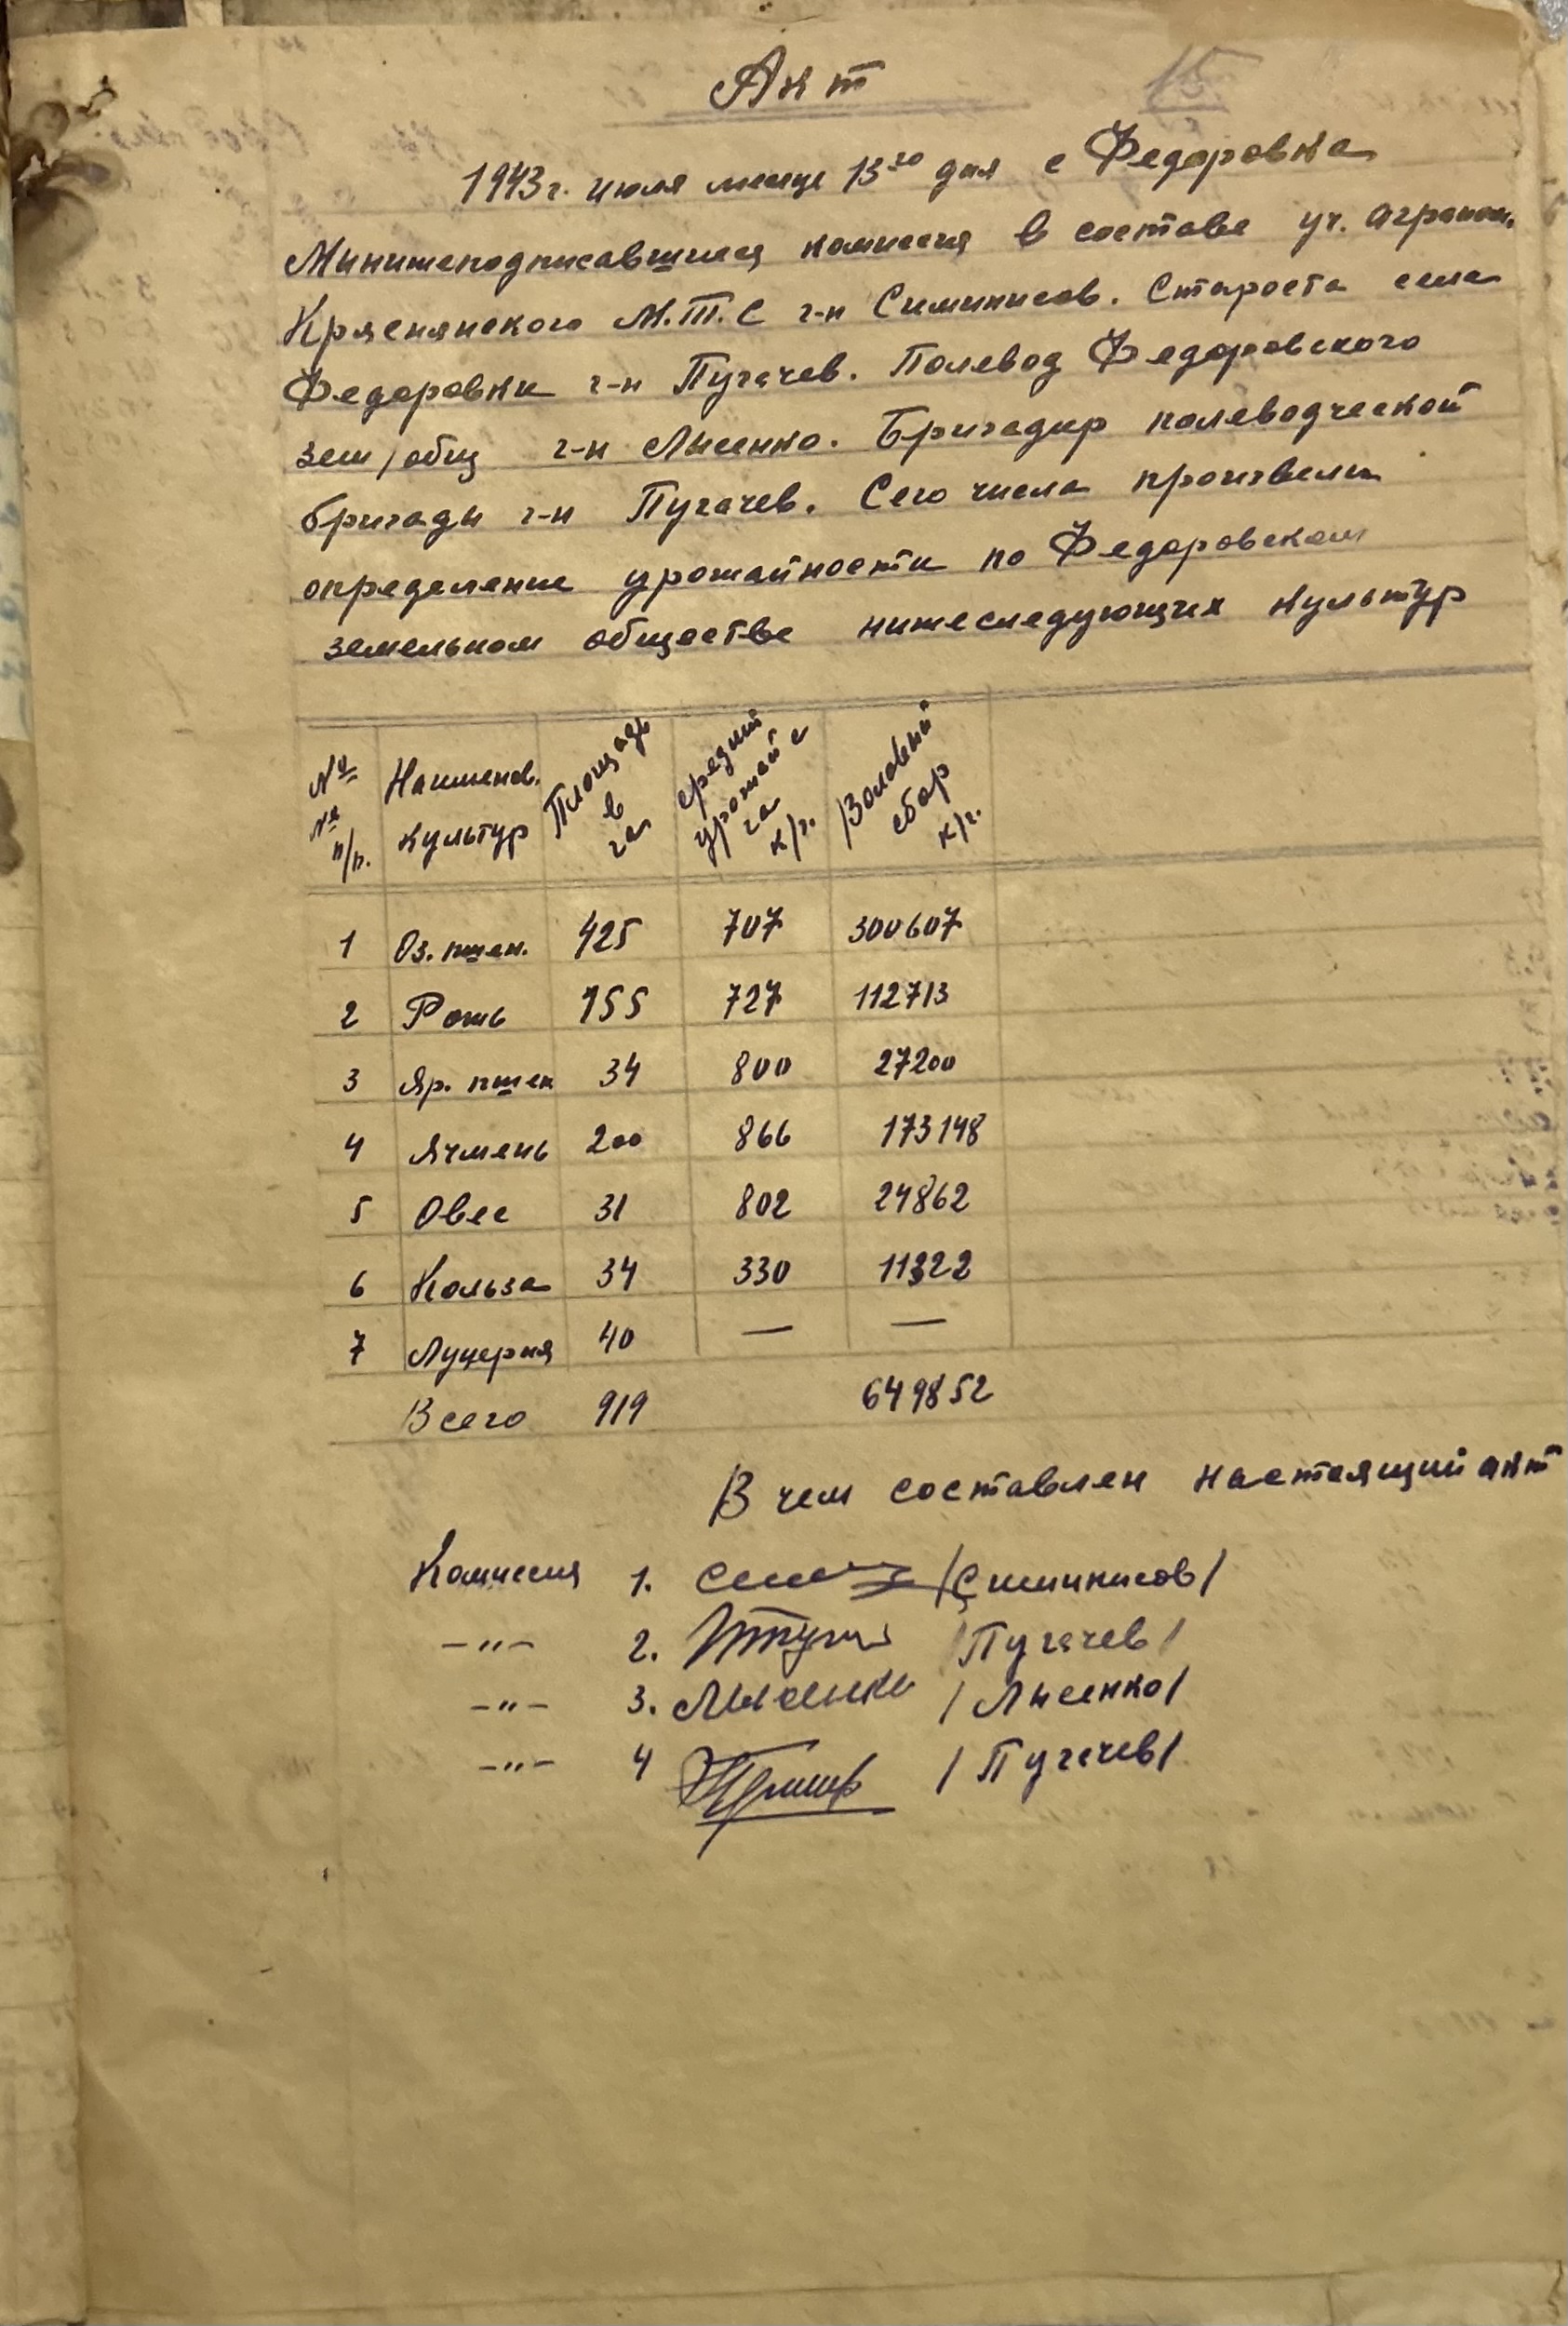 Акт
15
1943г. июля месяце 13го дня с Федоровка
Мынижеподписавшиеся комиссия в составе уч. агроном.
М.Т.С г-н Симинисов. Староста села
Федоровки г-н Пугачев. Полевод Федоровского
зем/общ г-н Лысенко. Бригадир полеводческой
бригады г-н Пугачев. Сего числа произвели
определение урожайности по Федоровском
земельном обществе нижеследующих культур
№ № п/п. Наименов. культур Площадь в га средний урожай с га к/г. Воловый сбор к/г.
1 Оз. пшен. 425 707 300607
2 Рожь 155 727 112713
3 Яр. пшен 34 800 27200
4 Ячмень 200 866 173148
5 Овес 31 802 24862
6 Кольза 34 330 11322
7 Луцерня 40 — —
Всего 919 649852
В чем составлен настоящий акт
Комиссия 1. /Симинисов/
-"- 2. /Пугачев/
-"- 3. Лысенко /Лысенко/
-"- 4 /Пугачев/